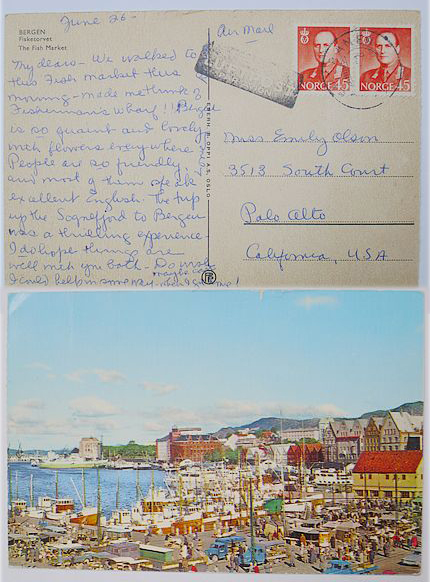 June 26-
BERGEN
Fisketorvet
The Fish Market
My dears - We walked to
this Fish market this
morning - made me think of
Fisherman's Wharf!! Bergen
is so quaint and lovely
with flowers everywhere.
People are so friendly,
and most of them speak
excellent English. The trip
up the Sognefjord to Bergen
was a thrilling experience
I do hope things are
well with you both - Do wish
I could help in some way - maybe when I get home!
Air Mail
NORGE 45
NORGE 45
Miss Emily Olson
3513 South Court
Palo Alto
California, USA
OSLO